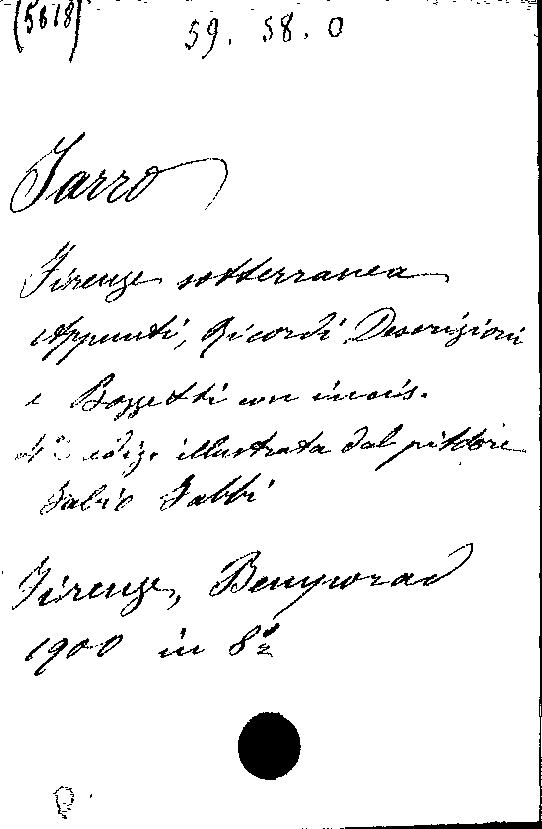 (5618)
59. 58. 0
Jarro
Firenze sotterranea
Appunti, Ricordi Descrizioni
e Bozzetti con incis.
4ª ediz. illustrata dal pittore
Fabio Fabbi
Firenze, Bemporad
1900 in 8º